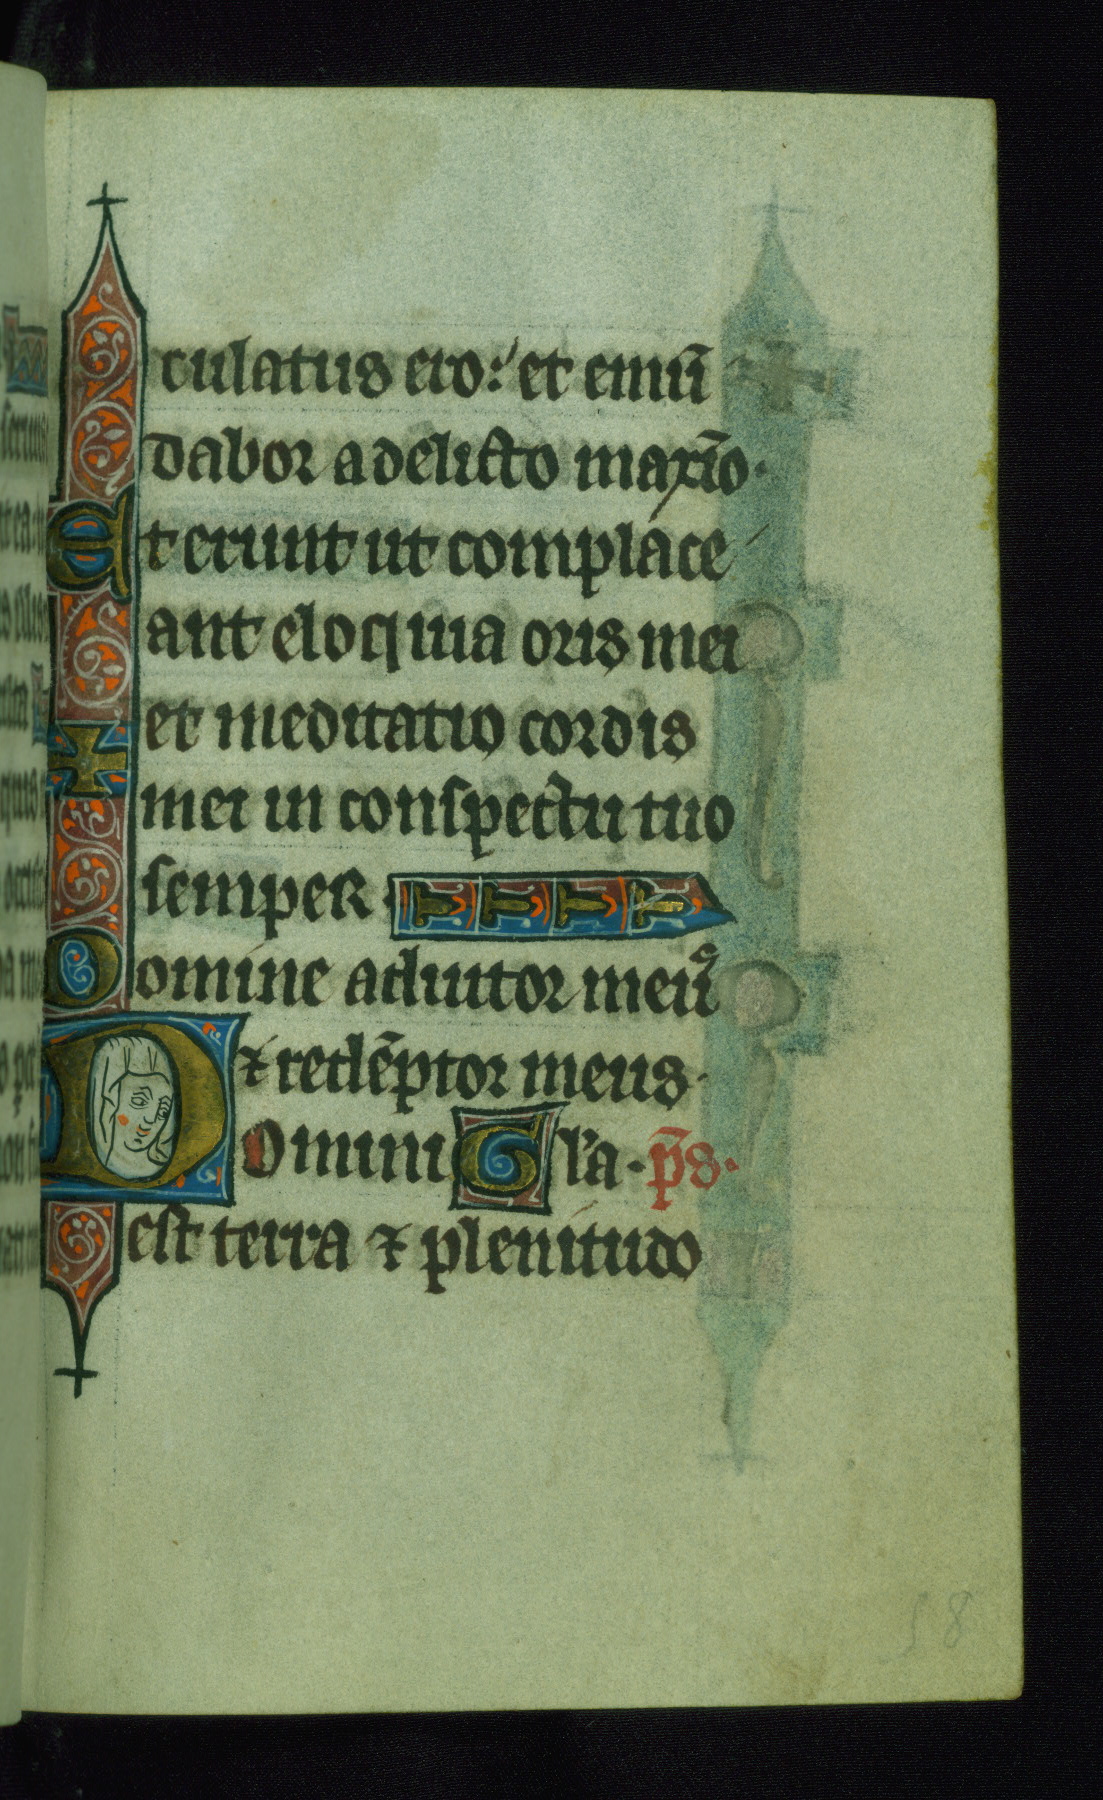 culatus ero: et emū
dabor a delicto maxīo.
Et erunt ut complace
ant eloquia oris mei
et meditatio cordis
mei in conspectu tuo
semper
Domine adiutor meuˀ
⁊ redēptor meus.
Domini Gl'a. p̄s.
est terra ⁊ plenitudo
58